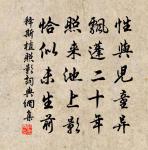 性與兒童異
飄蓬二十年
照来池上影
恰似未生前
釋斯植照影詞典網集